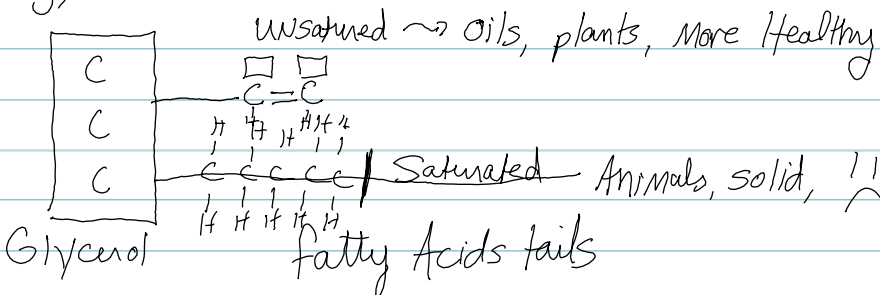 unsatured ~> Oils, plants, More Healthy
C
C = C
C
H H H H H H
C C C C C C Saturated Animals, solid,
H H H H H
Glycerol fatty Acids tails